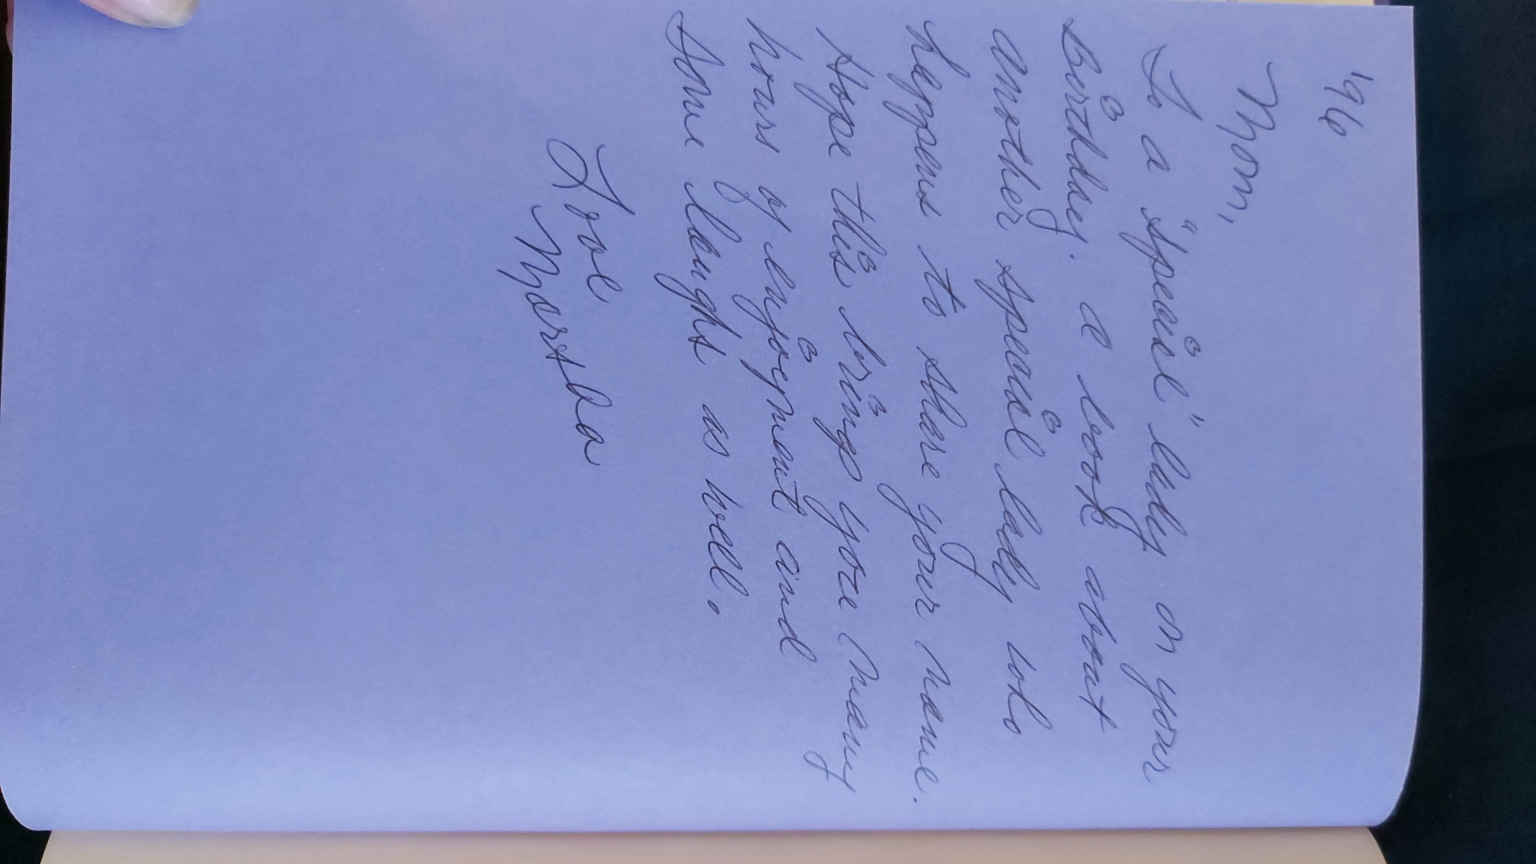 '96
Mom,
To a "special" lady on your
Birthday. a book about
another special lady who
happens to share your name.
Hope this brings you many
hours of enjoyment and
some laughs as well.
Love
Marsha